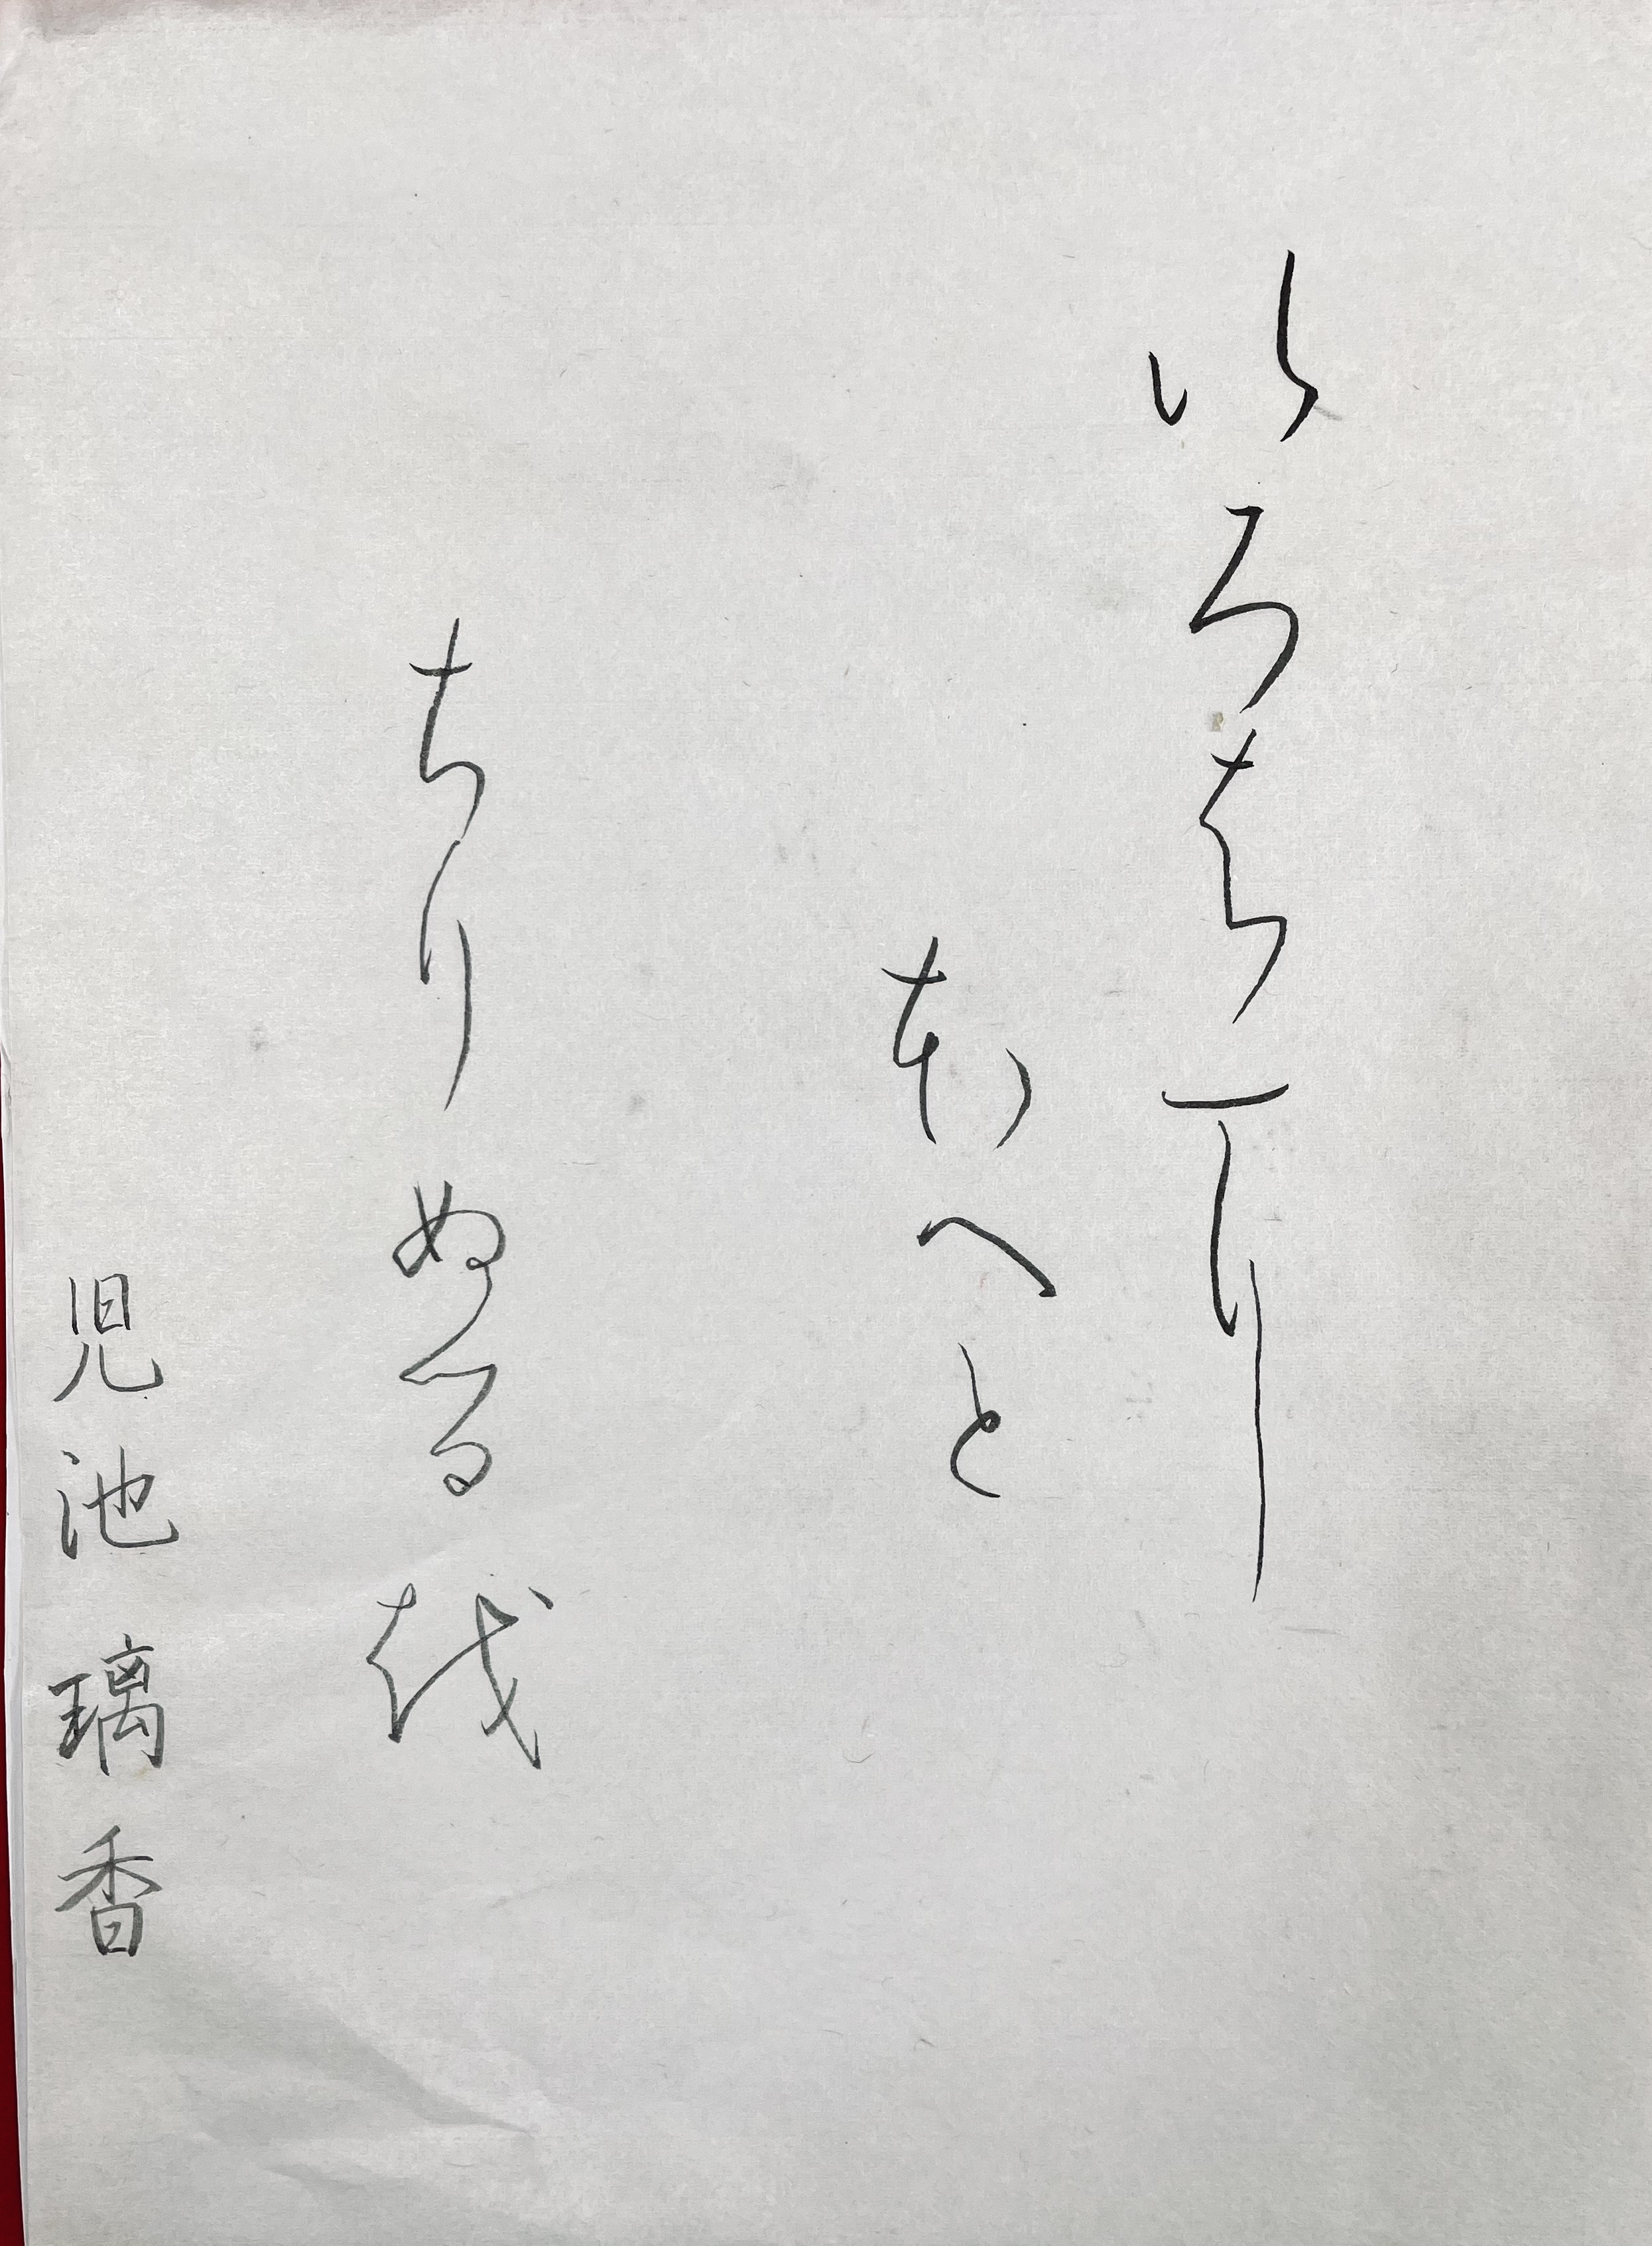 いろはに
ほへと
ちりぬる越
児池璃香